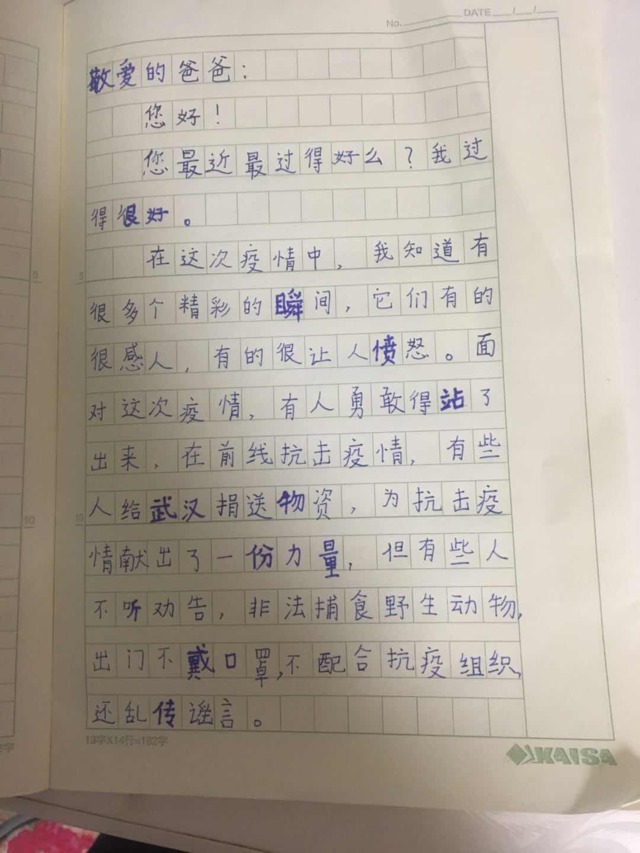 No. DATE / /
敬爱的爸爸：
您好！
您最近最过得好么？我过
得很好。
在这次疫情中，我知道有
很多个精彩的瞬间，它们有的
很感人，有的很让人愤怒。面
对这次疫情，有人勇敢得站了
出来，在前线抗击疫情，有些
人给武汉捐送物资，为抗击疫
情献出了一份力量，但有些人
不听劝告，非法捕食野生动物，
出门不戴口罩，不配合抗疫组织，
还乱传谣言。
5
5
10
10
13字X14行=182字
KAISA